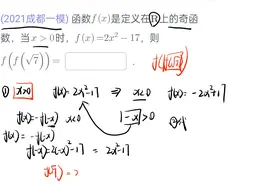 (2021成都一模) 函数f(x)是定义在R上的奇函
数，当x>0时，f(x)=2x²−17，则
f(f(√7))=
f(f(√7))
① x>0 f(x)=2x²−17 ⇒ x<0 f(x)=−2x²+17
f(x)=−f(−x) x<0 −x>0
f(x)=−f(−x)
f(−x)=2(−x)²−17 = 2x²−17
f(√7)=